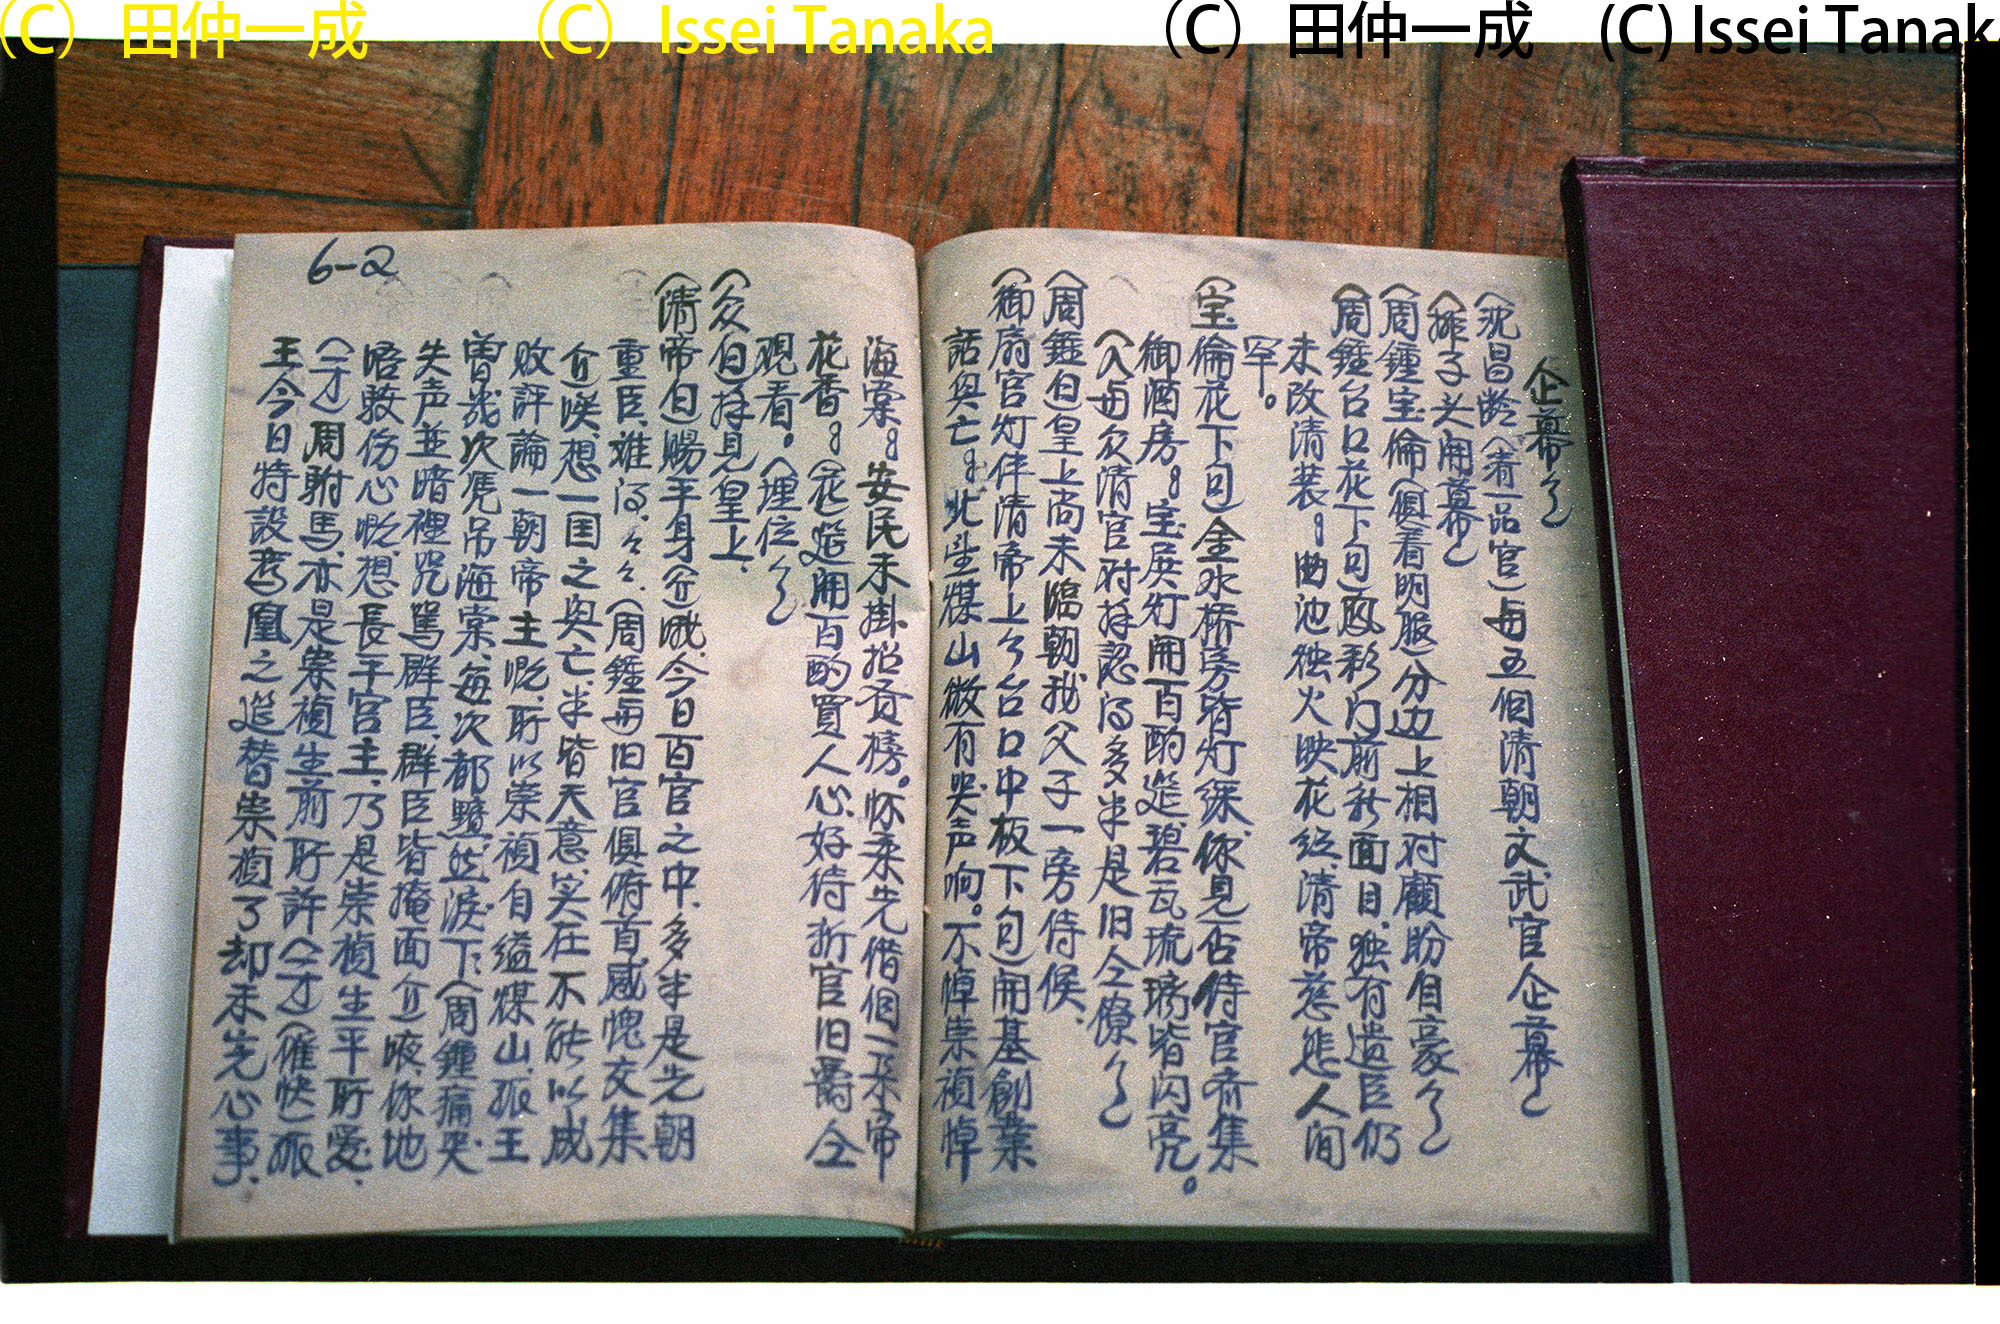 (C) 田仲一成
(C) Issei Tanaka
(C) 田仲一成
(C) Issei Tanak
企幕
(沈昌齡(清一品官)与五個清朝文武官企幕
(排子头開幕
(周鍾宝倫(俱着明服分边上相对顧盼自豪
(周鍾台口花下句)彩门前新面目、独有遗臣仍
未改清装。曲池独火映花红、清帝慈悲人间
罕。
(宝倫花下句)金水桥旁皆灯綵、你見否侍官齐集
御酒房。宝展灯開百酌筵、碧瓦琉璃皆闪亮。
(入与众清官对揖認得多半是旧仝僚
(周鍾白)皇上尚未臨朝我父子一旁侍候、
(御扇官灯伴清帝上台口中板下句)開基創業
話興亡。北望煤山微有哭声响。不悼崇禎悼
海棠。安民未掛招贤榜。怀柔先借個一来帝
花香。(花筵開百酌買人心、好待折官旧爵仝
观看。(埋位
(众白)拜見皇上、
(清帝白)賜平身(介)哦、今日百官之中、多半是先朝
重臣、难得、々々、(周鍾与旧官俱俯首感愧交集
介)唉、想一国之興亡、半皆天意、实在不能以成
败評論一朝帝主嘅、所以崇禎自縊煤山、孤王
曾幾次凭吊海棠、每次都黯然淚下、(周鍾痛哭
失声並暗裡咒罵群臣、群臣皆掩面介)㖡、你地
唔駛伤心嘅、想長平宮主、乃是崇禎生平所愛、
(才)周駙馬、亦是崇禎生前所許(才)(催快)孤
王今日特設鸞凰之筵替崇禎了却未完心事、
6-2